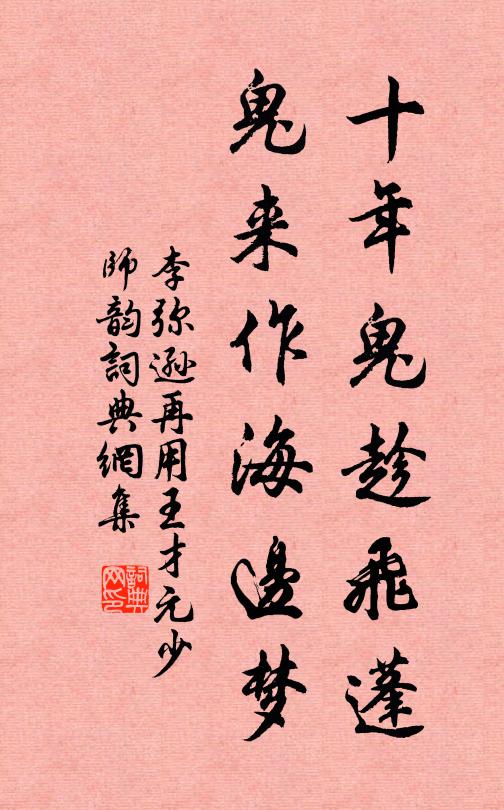 十年鬼趁飛蓬
鬼来作海邊梦
李弥遜再用王才元少
師韵詞典網集
詞典网印